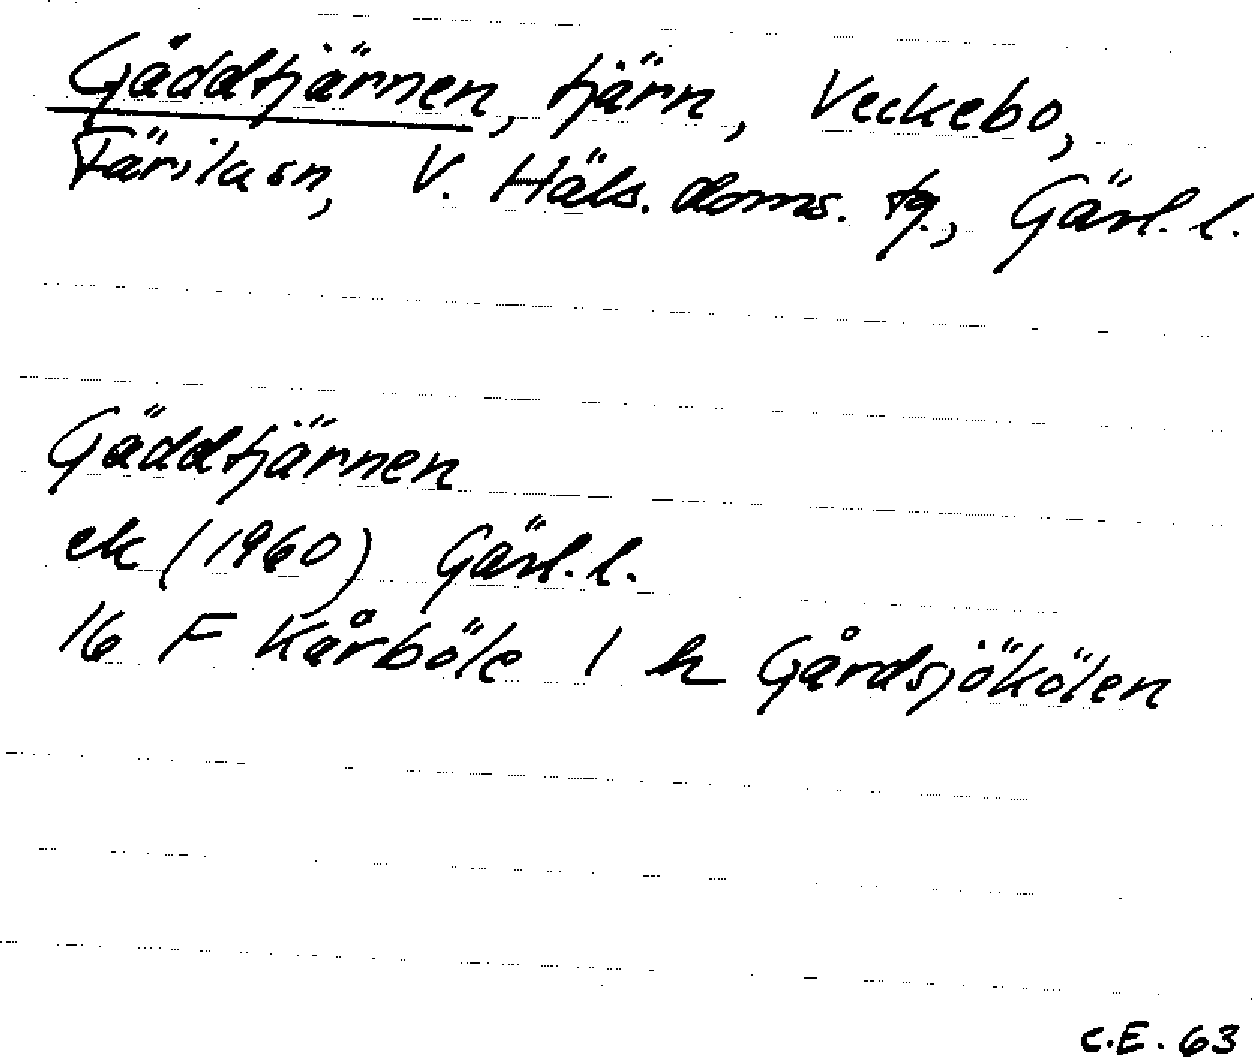 Gäddtjärnen, tjärn, Veckebo,
Färila sn, V. Häls. doms. tg., Gävl. l.
Gäddtjärnen
ek (1960) Gävl. l.
16 F Kårböle 1 h Gårdsjökölen
C.E. 63